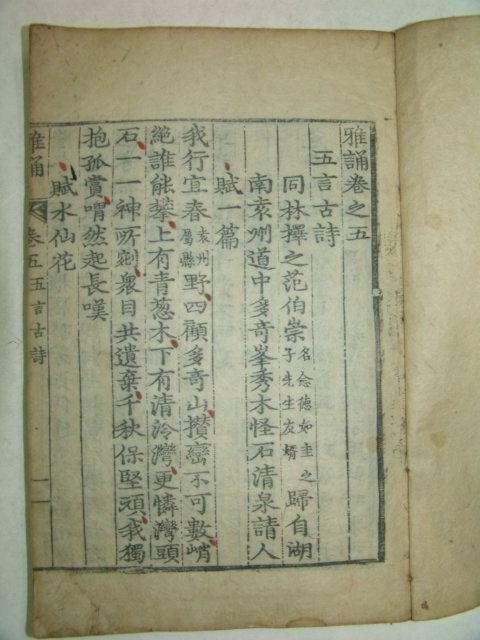 雅誦卷之五
五言古詩
同林擇之范伯崇名念德如圭之子先生友婿歸自湖
南袁州道中多奇峯秀木怪石清泉請人
賦一篇
我行宜春袁州屬縣野四顧多奇山攢巒不可數峭
絶誰能攀上有青葱木下有清泠灣更憐灣頭
石一一神所剜衆目共遺棄千秋保堅頑我獨
抱孤賞喟然起長嘆
賦水仙花
雅誦 卷五五言古詩 一